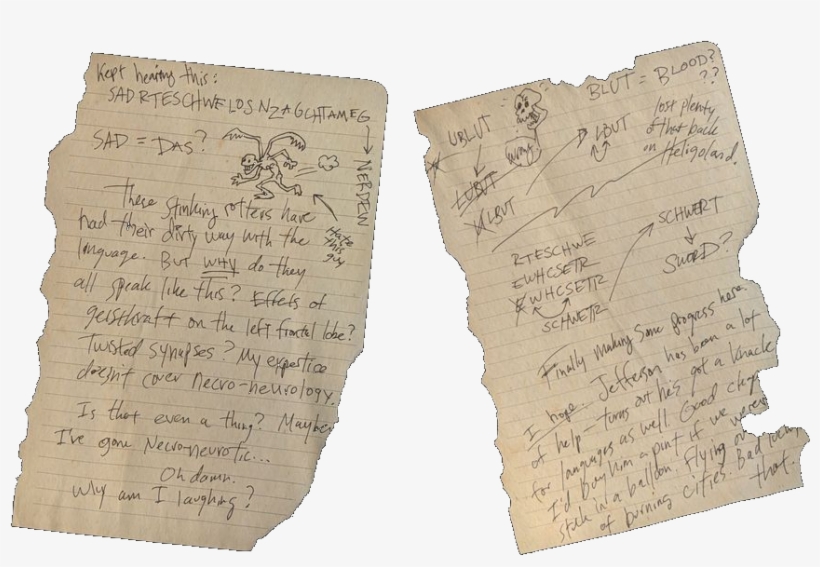 Kept hearing this:
SADRTESCHWELOSNZAGCHTAMEG
NERDEW
SAD = DAS?
Hate
this
guy
These stinking rotters have
had their dirty way with the
language. But WHY do they
all speak like this? Effects of
geistkraft on the left frontal lobe?
Twisted synapses? My expertise
doesn't cover necro-neurology.
Is that even a thing? Maybe
I've gone Necro-neurotic...
Oh damn.
Why am I laughing?
BLUT = BLOOD?
??
lost plenty
of that back
on Heligoland.
UBLUT
LUBUT
ULBUT
LBUT
RTESCHWE
EWHCSETR
EWHCSETR
SCHWETR
SCHWERT
SWORD?
Finally making some progress here.
I hope. Jefferson has been a lot
of help - turns out he's got a knack
for languages as well. Good chap.
I'd buy him a pint if we weren't
stuck in a balloon. Flying over
of burning cities. Bad
that.